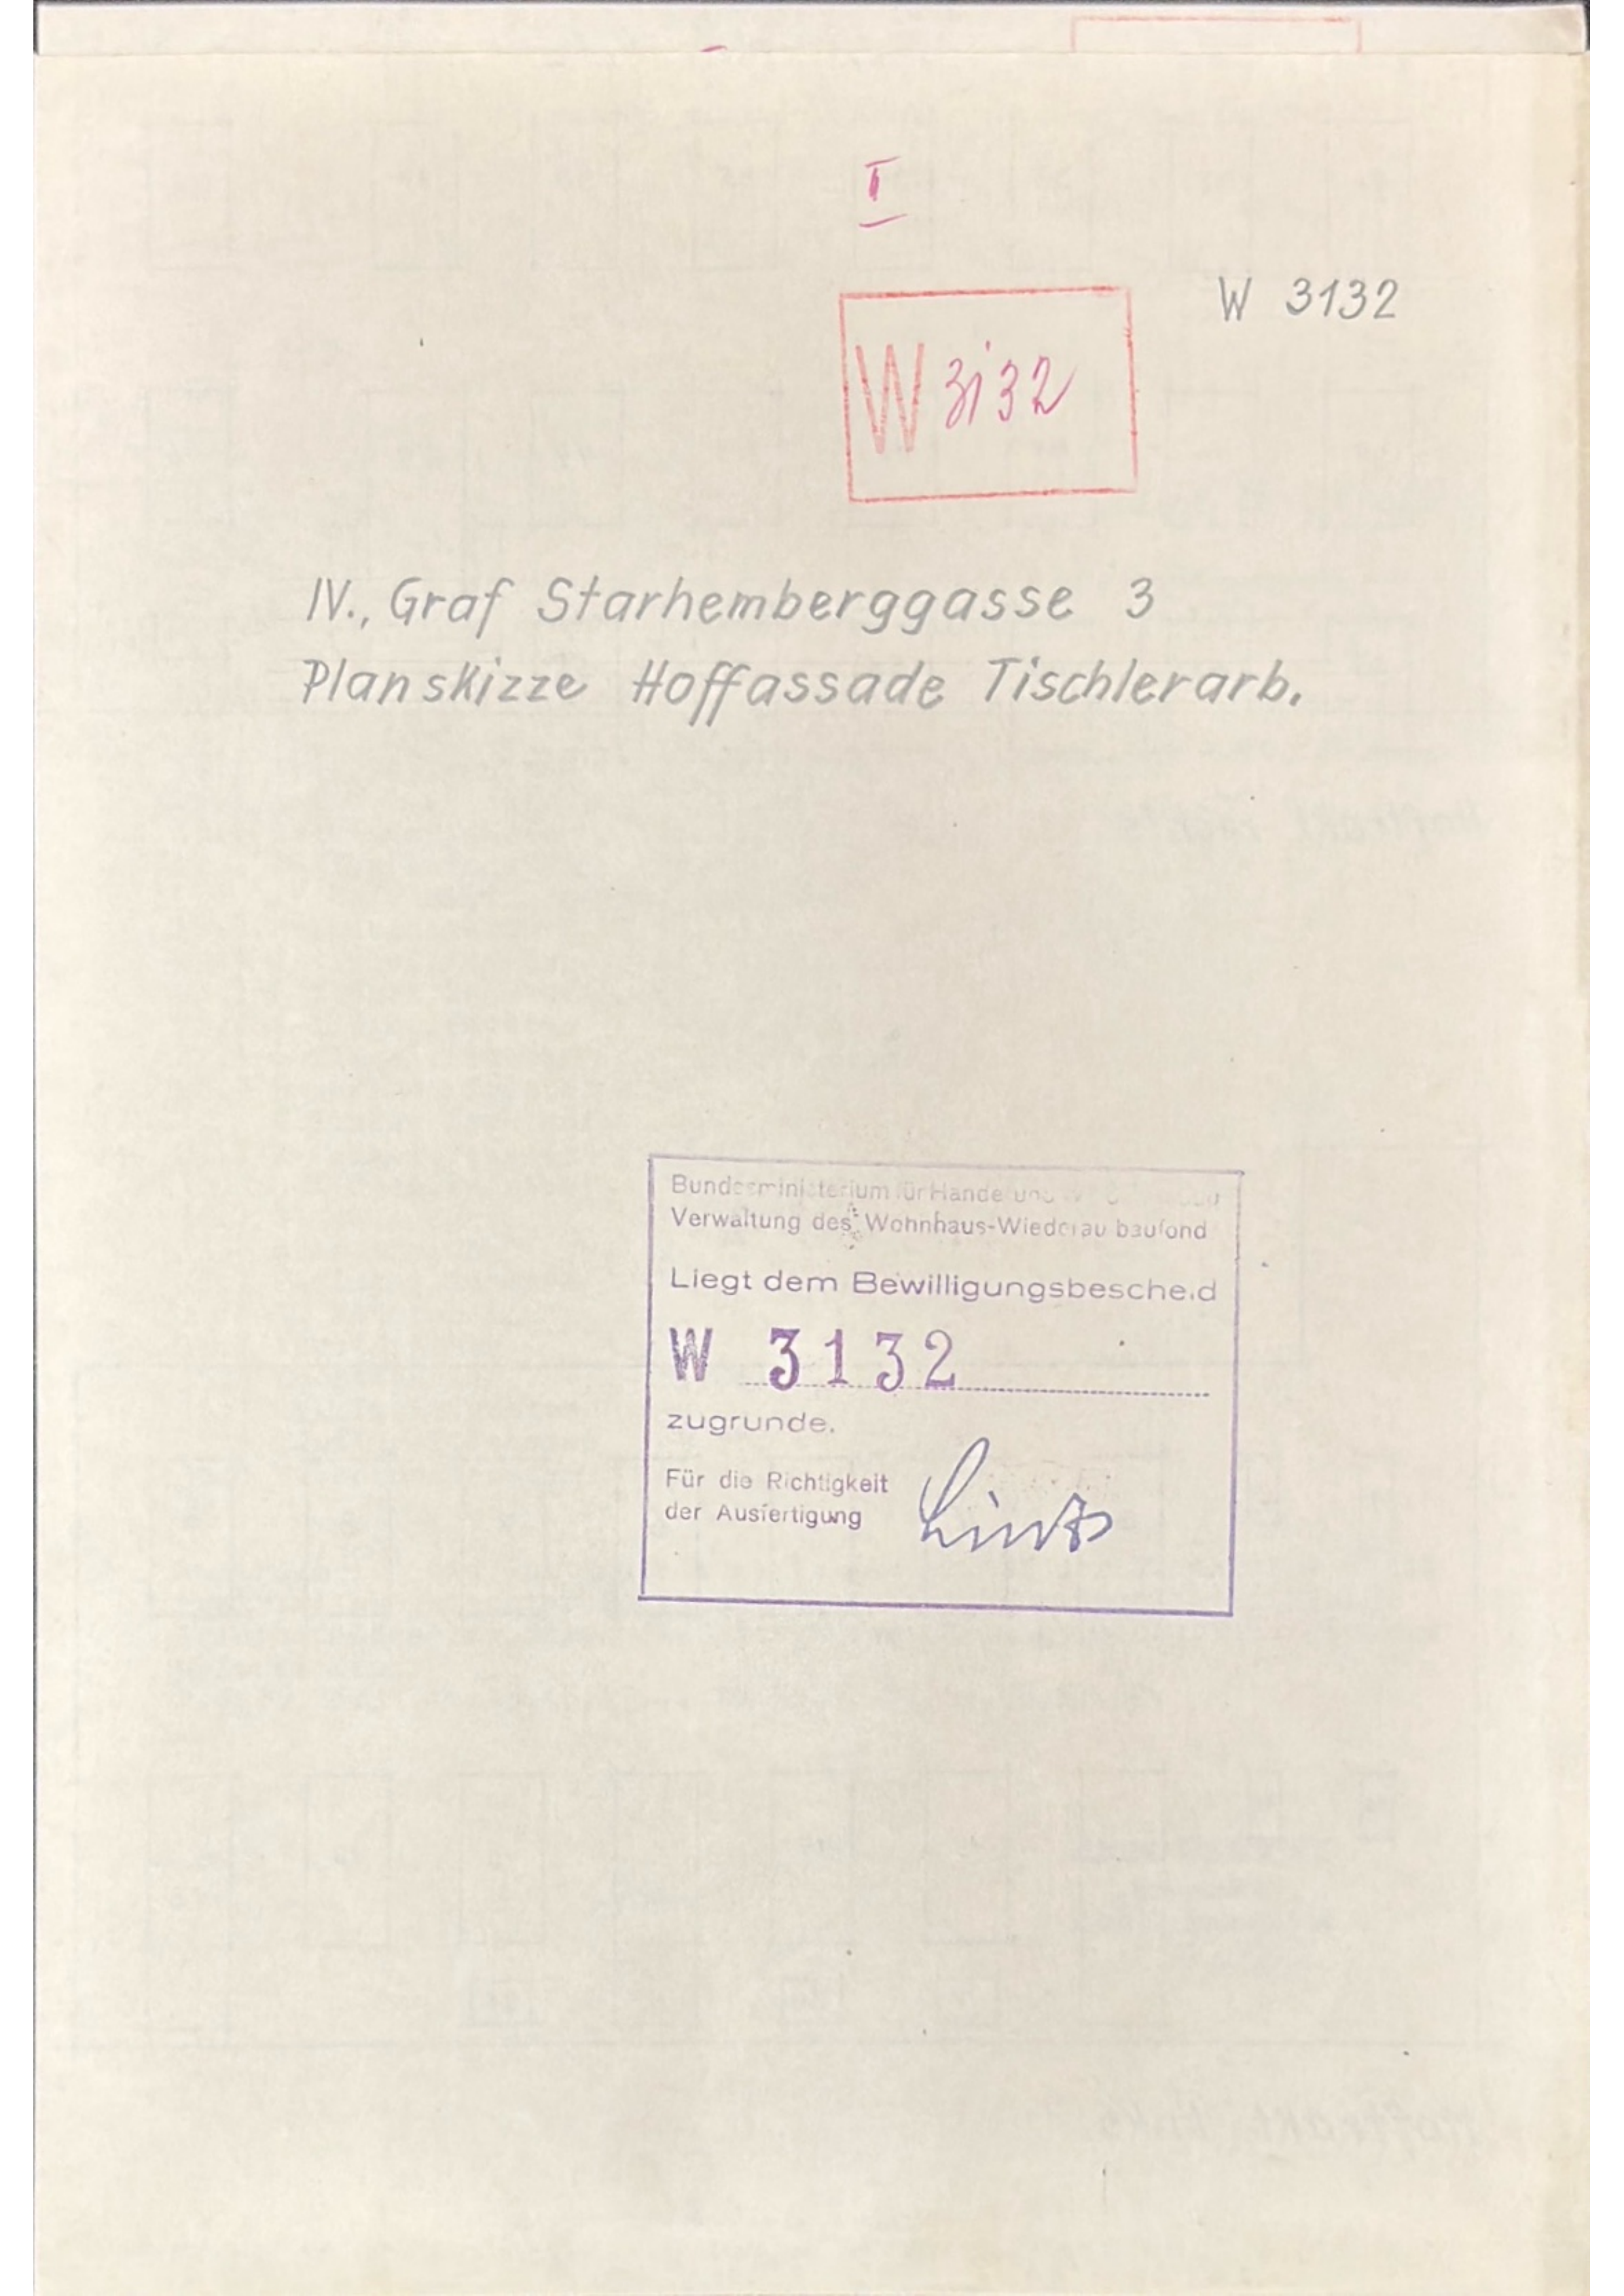 I
W 3132
W 3132
IV., Graf Starhemberggasse 3
Planskizze Hoffassade Tischlerarb.
Bundesministerium für Handel und
Verwaltung des Wohnhaus-Wiederaufbaufond
Liegt dem Bewilligungsbescheid
W 3132
zugrunde.
Für die Richtigkeit
der Ausfertigung